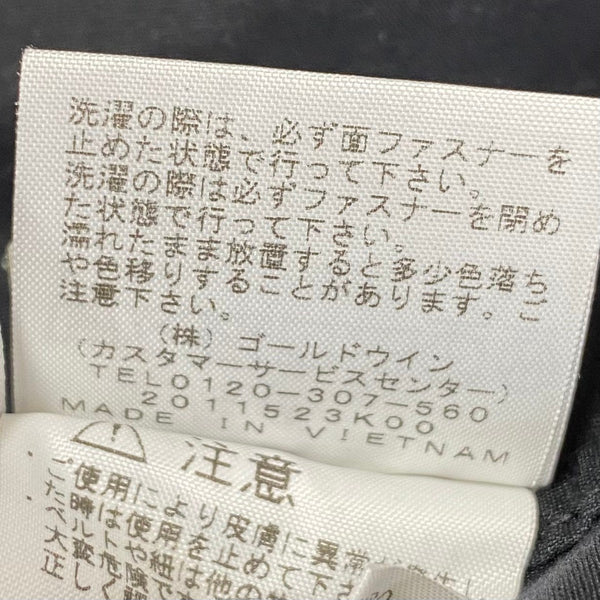 洗濯の際は、必ず面ファスナーを
止めた状態で行って下さい。
洗濯の際は必ずファスナーを閉め
た状態で行って下さい。
濡れたまま放置すると多少色落ち
や色移りすることがあります。ご
注意下さい。
(株)ゴールドウイン
(カスタマーサービスセンター)
TEL0120-307-560
2011523K00
MADE IN VIETNAM
注意
・ご使用により皮膚に異常が発生し
た時は使用を止めて下
・ベルトや紐は他の
大変危険です
正しく